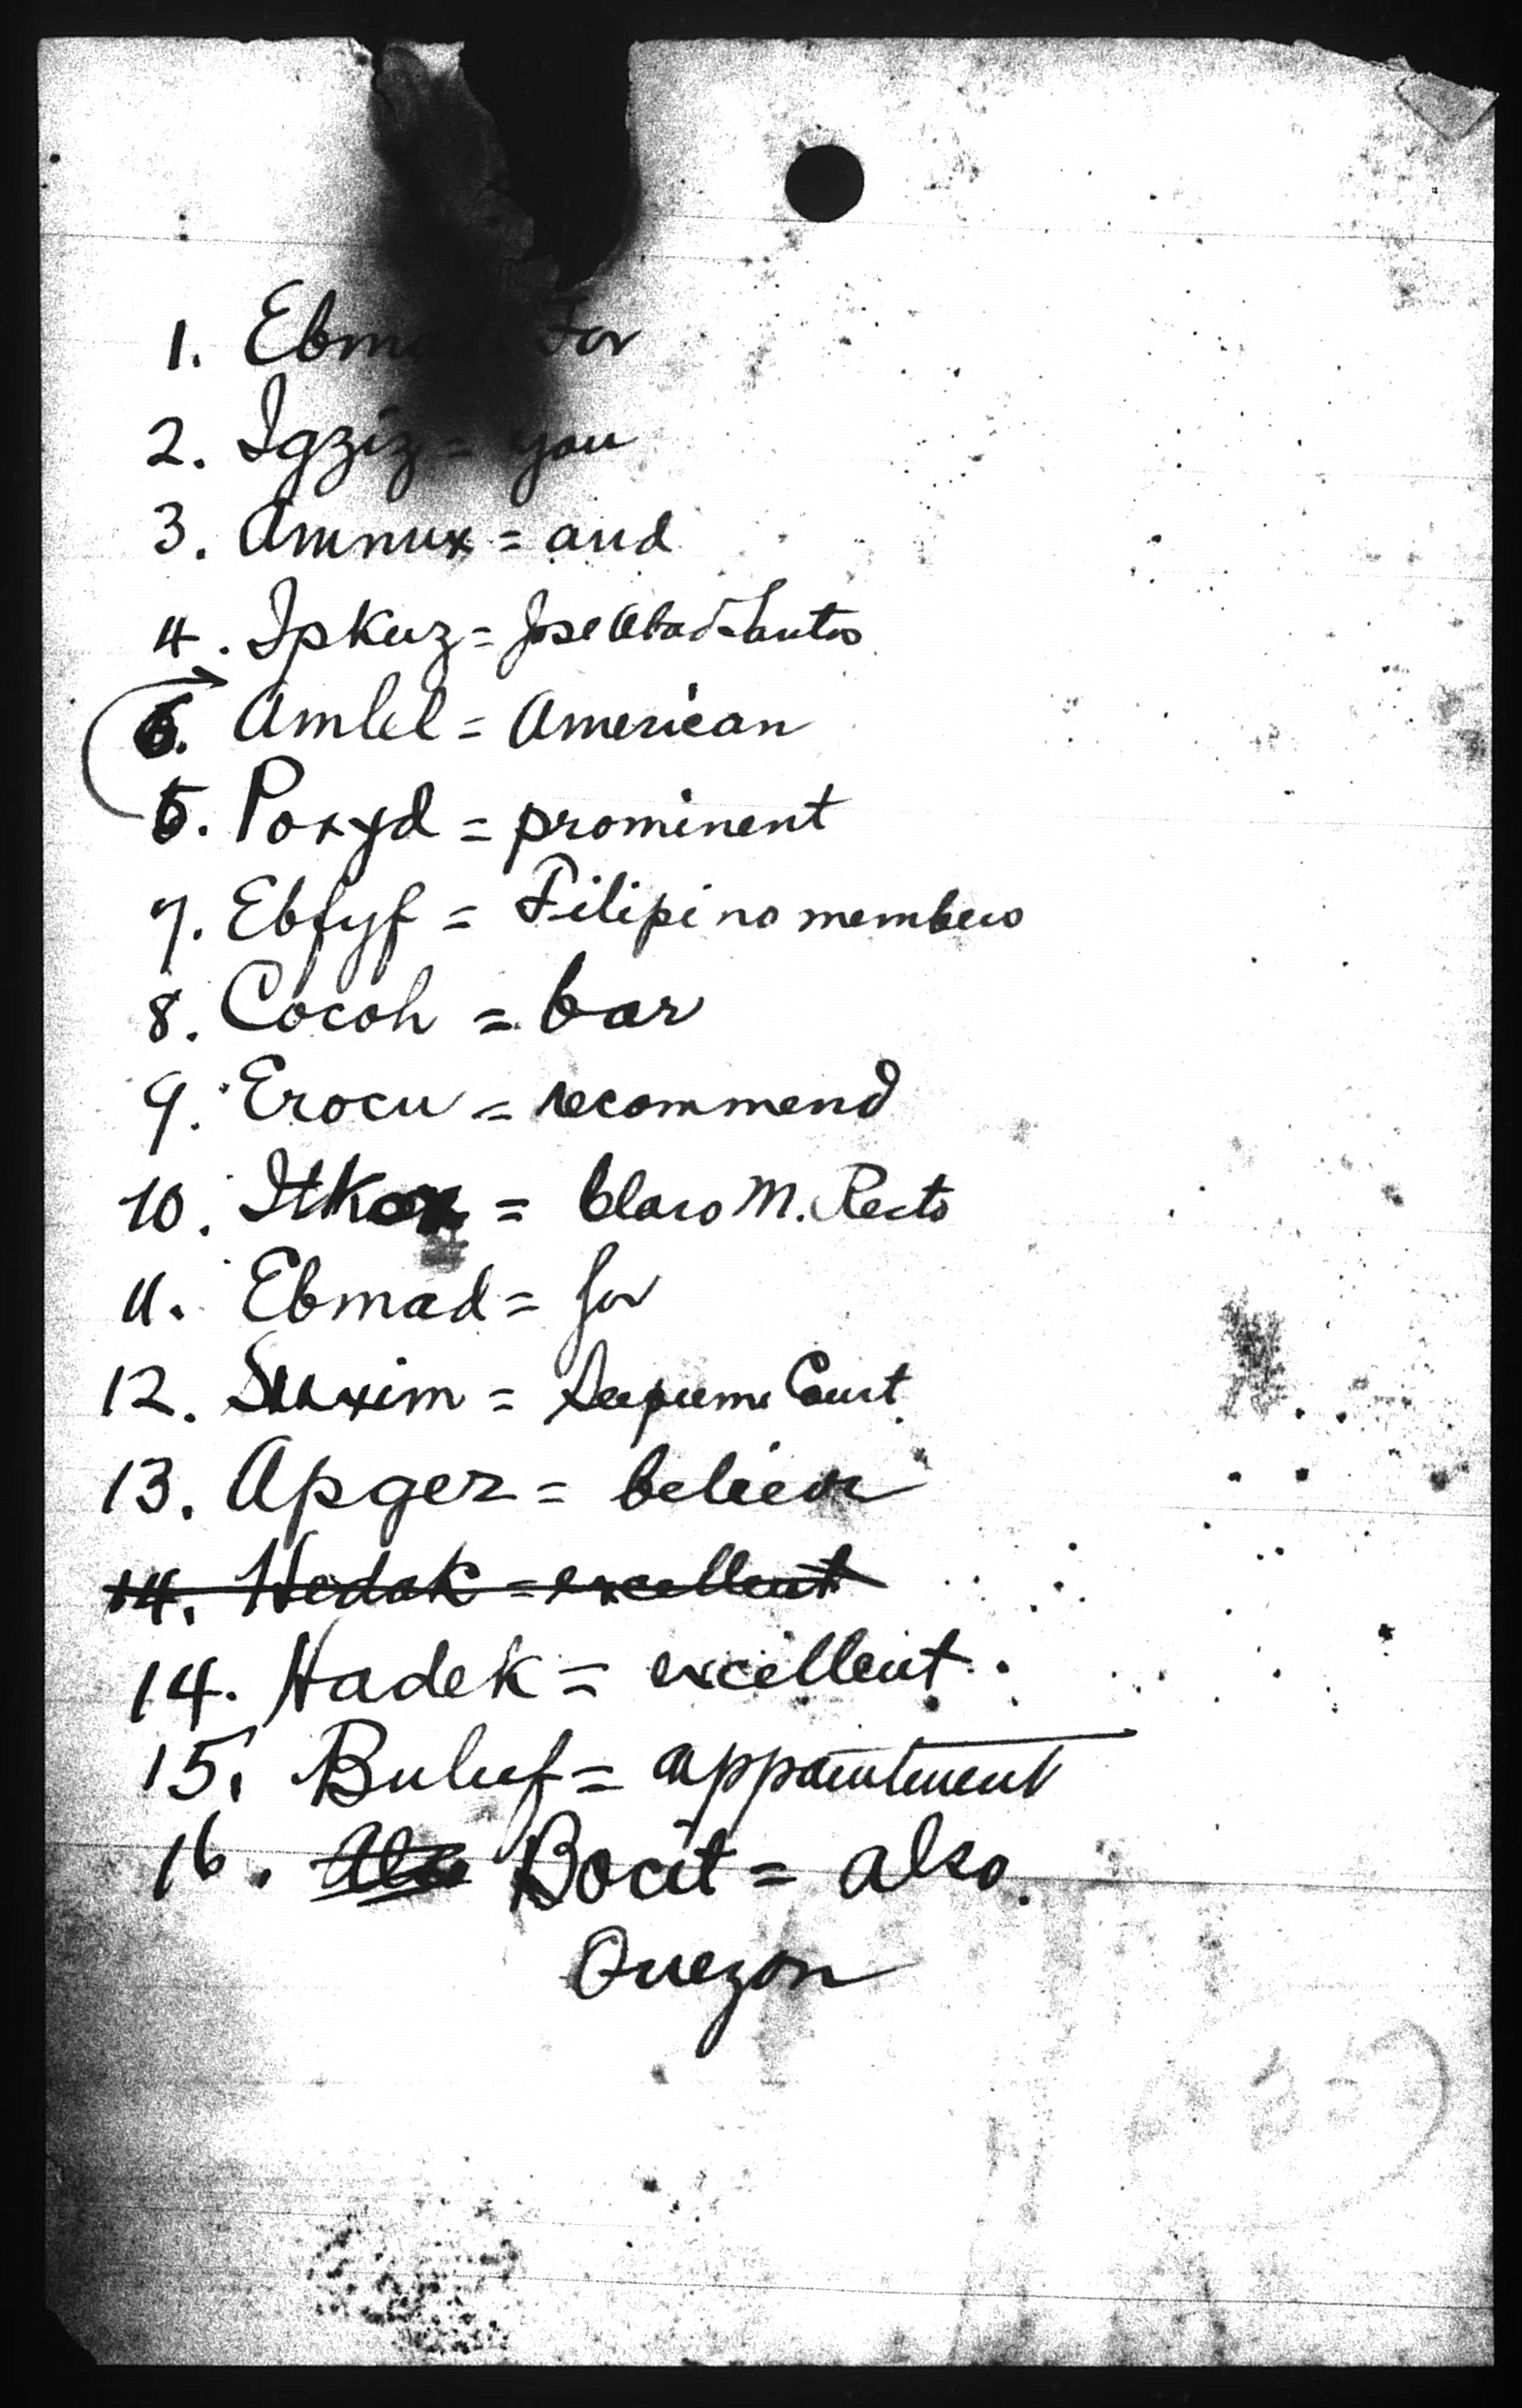 1. Ebmad = For
2. Igziz = you
3. Amnux = and
4. Ipkuz = Jose Abad Santos
6. Amlel = American
5. Poxyd = prominent
7. Ebfyf = Filipino members
8. Cocoh = bar
9. Erocu = recommend
10. Itkox = Claro M. Recto
11. Ebmad = for
12. Suxim = Supreme Court
13. Apgez = believe
14. Hedak = excellent
14. Hadek = excellent.
15. Buluf = appointment
16. Also Bocit = also.
Quezon